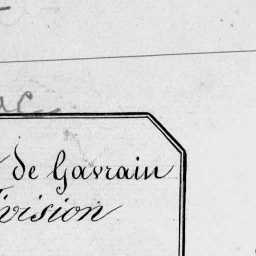 ac
de Gavrain
ivision